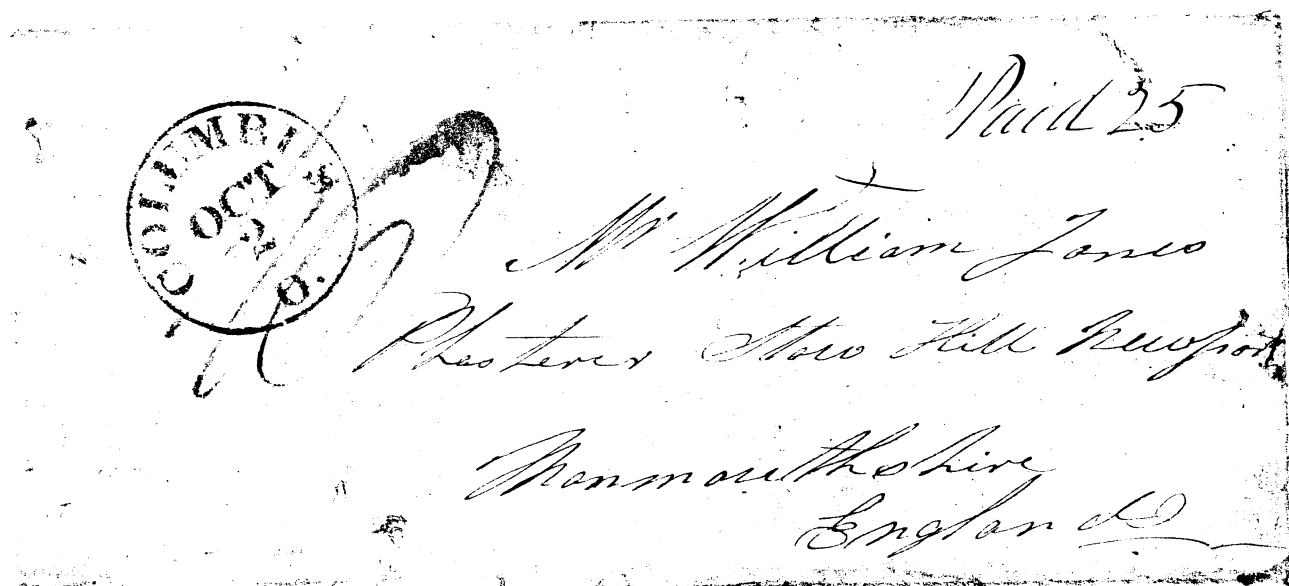 Paid 25
COLUMBUS
OCT
2
O.
Mr William Jones
Plasterer Stow Hill Newport
Monmouthshire
England